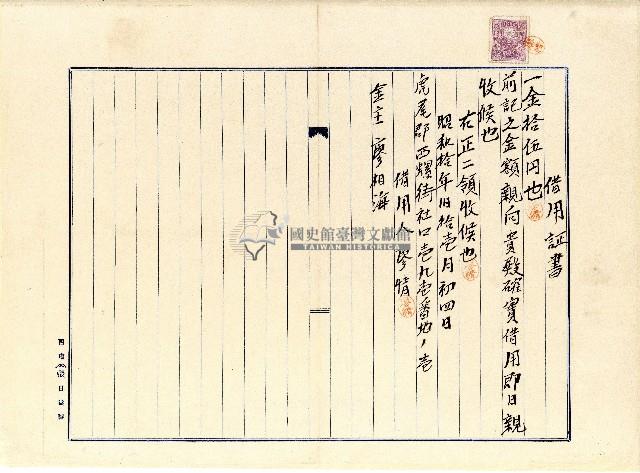 借用証書
一金拾伍円也
前記之金額親向貴殿確實借用即日親
收候也
在正ニ領收候也
昭和拾年旧拾壱月初四日
虎尾郡西螺街社口壱九壱番地ノ壱
借用人廖情
金主 廖相海
國史館臺灣文獻館
TAIWAN HISTORICA